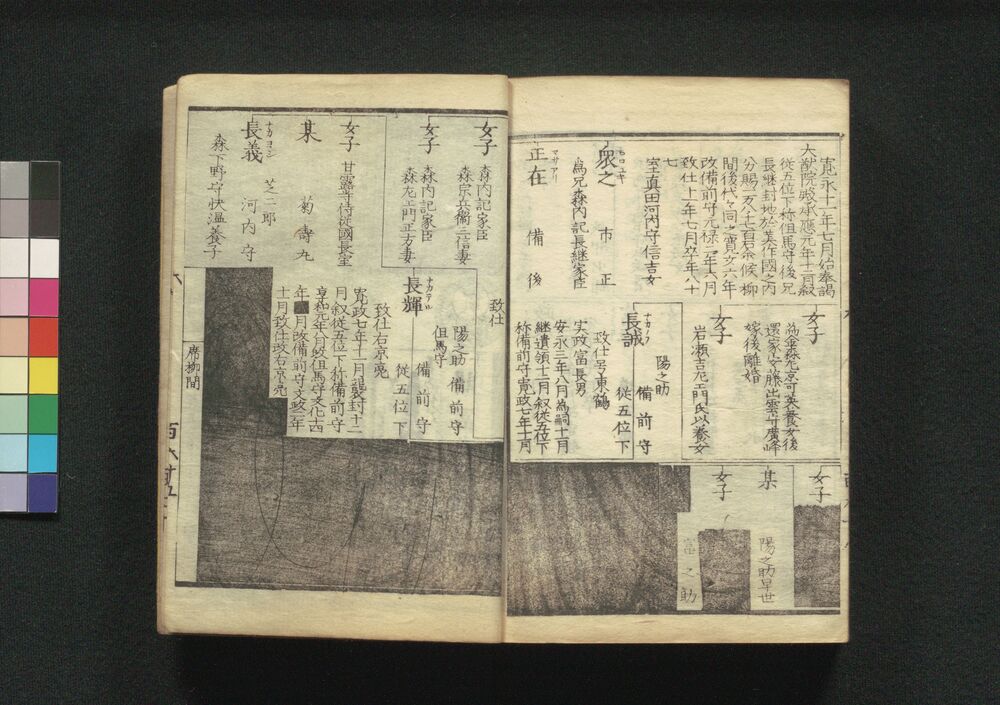 寛永十一年七月始奉謁
大猷院殿承應元年十二月叙
従五位下称但馬守後兄
長継封地於美作國之内
分賜一万八千七百石余候柳
間後代々同之寛文六年
改備前守元禄二年六月
致仕上年七月卒年八十
七
室真田河内守信吉女
衆之
市正
為兄森内記長継家臣
正在
マサアリ
備後
女子
還家安藤出雲守廣峰
嫁後離婚
女子
岩瀬吉左エ門氏以養女
長誠
陽之助
備前守
従五位下
致仕号東鶴
実政富長男
安永三年八月為嗣十一月
継遺領十二月叙従五位下
称備前守寛政七年十月
女子
某
陽之助早世
女子
富之助
致仕
女子
森内記家臣
森宗兵衛三信妻
女子
森内記家臣
森左エ門正方妻
女子
甘露寺侍従國長室
某
菊壽丸
長義
ナカヨシ
芝二郎
河内守
森下野守快温養子
長輝
ナカテル
陽之助
備前守
但馬守
従五位下
致仕右京亮
寛政七年十一月襲封十二
月叙従五位下称備前守
享和元年月改但馬守文化四
年月改備前守文政二年
十一月致仕改右京亮
席柳間